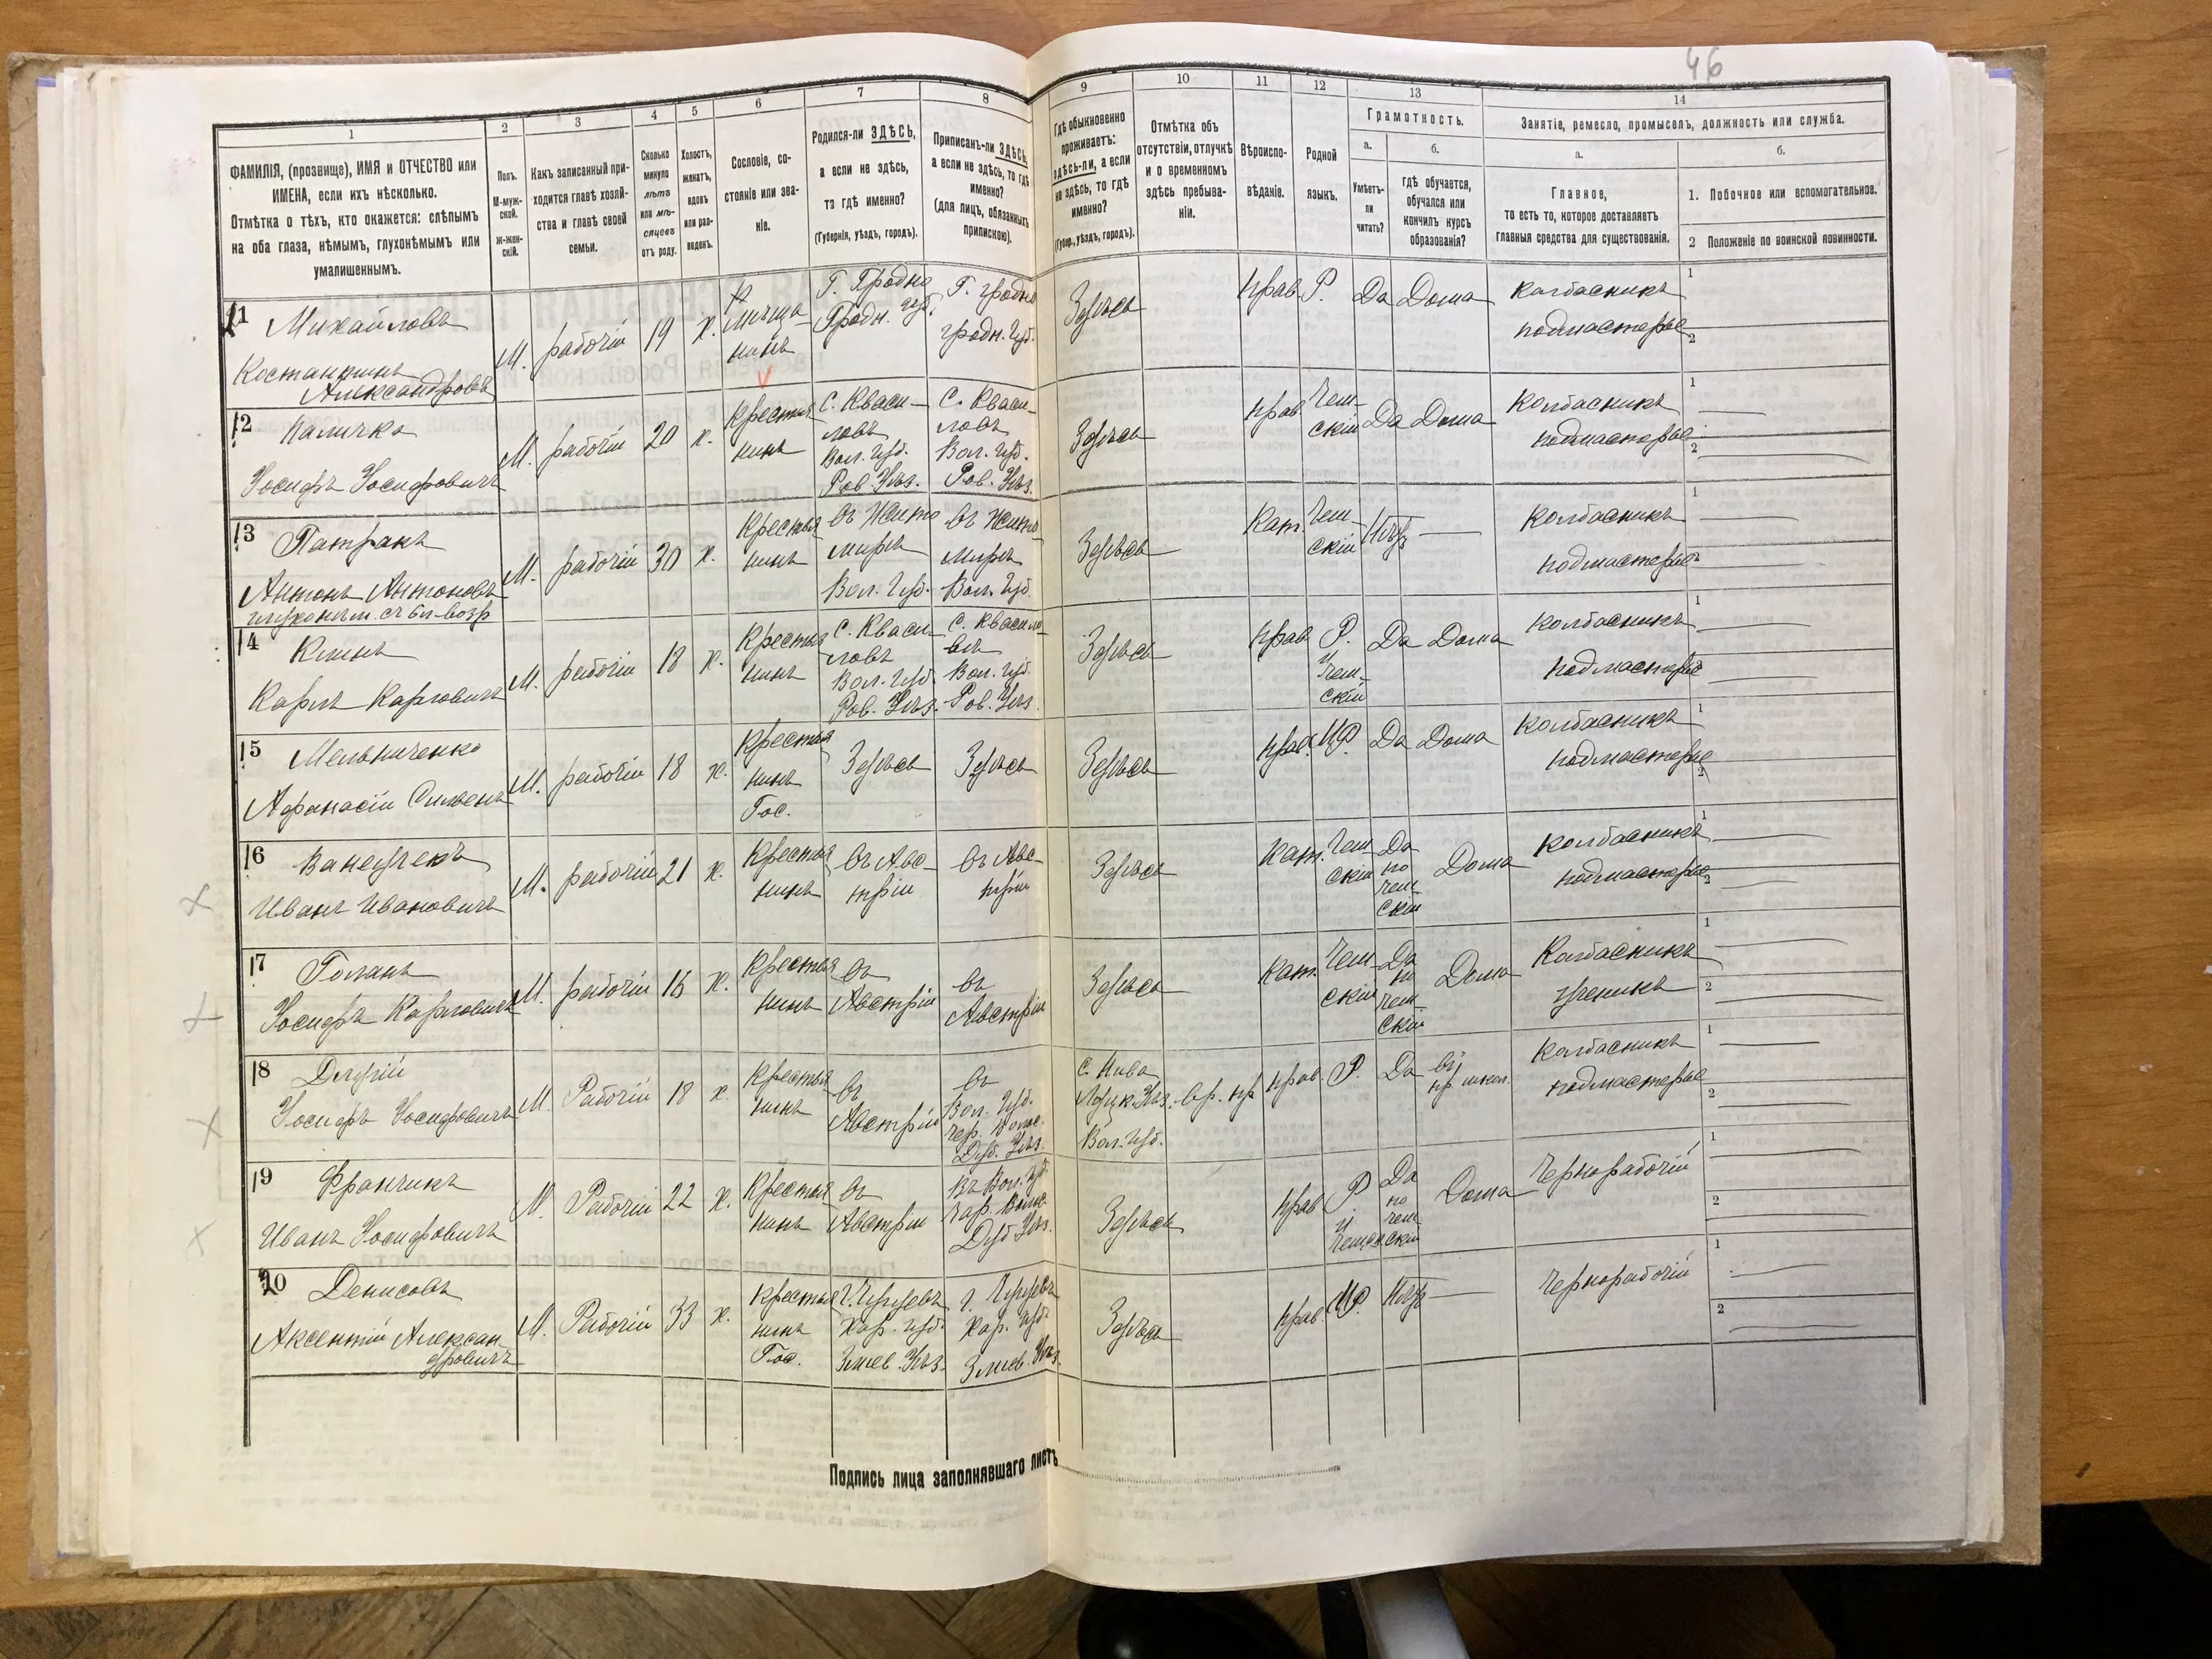 46
1 2 3 4 5 6 7 8 9 10 11 12 13 14
ФАМИЛІЯ, (прозвище), ИМЯ и ОТЧЕСТВО или
ИМЕНА, если ихъ нѣсколько.
Отмѣтка о тѣхъ, кто окажется: слѣпымъ
на оба глаза, нѣмымъ, глухонѣмымъ или
умалишеннымъ.
Полъ.
М-муж-
ской.
Ж-жен-
скій.
Какъ записанный при-
ходится главѣ хозяй-
ства и главѣ своей
семьи.
Сколько
минуло
лѣтъ
или мѣ-
сяцевъ
отъ роду.
Холостъ,
женатъ,
вдовъ
или раз-
веденъ.
Сословіе, со-
стояніе или зва-
ніе.
Родился-ли ЗДѢСЬ,
а если не здѣсь,
то гдѣ именно?
(Губернія, уѣздъ, городъ).
Приписанъ-ли ЗДѢСЬ,
а если не здѣсь, то гдѣ
именно?
(для лицъ, обязанныхъ
припискою).
Гдѣ обыкновенно
проживаетъ:
здѣсь-ли, а если
не здѣсь, то гдѣ
именно?
(Губер., уѣздъ, городъ).
Отмѣтка объ
отсутствіи, отлучкѣ
и о временномъ
здѣсь пребыва-
ніи.
Вѣроиспо-
вѣданіе.
Родной
языкъ.
Грамотность.
а.
Умѣетъ-
ли
читать?
б.
гдѣ обучается,
обучался или
кончилъ курсъ
образованія?
Занятіе, ремесло, промыселъ, должность или служба.
а.
Главное,
то есть то, которое доставляетъ
главныя средства для существованія.
б.
1. Побочное или вспомогательное.
2 Положеніе по воинской повинности.
11 Михайловъ
Костантинъ
Александровъ
М. рабочій 19 х.
Мѣща-
нинъ
Г. Гродно
Гродн. губ.
Г. Гродно
Гродн. Губ.
Здѣсь
прав. Р. Да Дома
Колбасникъ
подмастерье
1
2
12 Паличка
Іосифъ Іосифовичъ
М. рабочій 20 х.
Крестья
нинъ
С. Кваси-
ловъ
Вол. Губ.
Ров. Уѣз.
С. Кваси-
ловъ
Вол. Губ.
Ров. Уѣз.
Здѣсь
прав.
Чеш-
скій
Да Дома
Колбасникъ
подмастерье
1
2
13 Патракъ
Антонъ Антоновъ
глухонѣм.
М. рабочій 30 х.
Крестья
нинъ
въ Жито
мирѣ
Вол. Губ.
въ Жито
мирѣ
Вол. Губ.
Здѣсь
Кат.
Чеш-
скій
Нѣтъ —
Колбасникъ
подмастерье
1
2
14 Клинъ
Карлъ Карловичъ
М. рабочій 18 х.
Крестья
нинъ
С. Кваси-
ловъ
Вол. Губ.
Ров. Уѣз.
С. Квасило-
въ
Вол. Губ.
Ров. Уѣз.
Здѣсь
прав.
Р.
и
Чеш-
скій
Да Дома
Колбасникъ
подмастерье
1
2
15 Мельниченко
Афанасій
М. рабочій 18 х.
Крестья
нинъ
Гос.
Здѣсь Здѣсь Здѣсь
прав. МР. Да Дома
Колбасникъ
подмастерье
1
2
16 Ванечекъ
Иванъ Ивановичъ
М. рабочій 21 х.
Крестья
нинъ
въ Авс-
тріи
въ Авс-
тріи
Здѣсь
Кат.
Чеш-
скій
Да
по
чеш-
скій
Дома
Колбасникъ
подмастерье
1
2
17 Голанъ
Іосифъ Карловичъ
М. рабочій 16 х.
Крестья
нинъ
въ
Австріи
въ
Австріи
Здѣсь
Кат.
Чеш-
скій
Да
по
чеш-
скій
Дома
Колбасникъ
ученикъ
1
2
18
Іосифъ Іосифовичъ
М. Рабочій 18 х.
Крестья
нинъ
въ
Австріи
въ
Вол. Губ.
Дуб. Уѣз.
С. Нива
Луцк. Уѣз.
Вол. Губ.
вр. пр.
прав. Р. Да
въ
нр школ.
Колбасникъ
подмастерье
1
2
19 Франчикъ
Иванъ Іосифовичъ
М. Рабочій 22 х.
Крестья
нинъ
въ
Австріи
въ Вол. Губ.
Дуб Уѣз.
Здѣсь
прав.
Р.
и
Да
по
чеш-
скій
Дома
Чернорабочій
1
2
20 Денисовъ
Аксентій Алексан-
дровичъ
М. Рабочій 33 х.
Крестья
нинъ
Гос.
г. Чугуевъ
Хар. Губ.
Зміев. Уѣз.
г. Чугуевъ
Хар. Губ.
Зміев. Уѣз.
Здѣсь
прав. МР. Нѣтъ —
Чернорабочій
1
2
Подпись лица заполнявшаго листъ